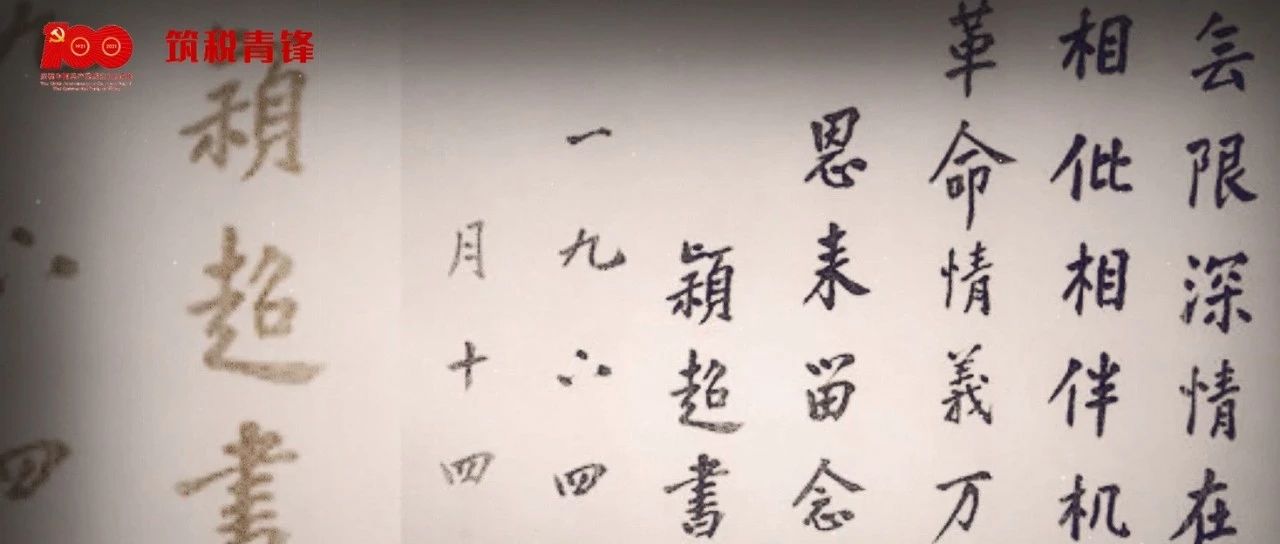 100
1921 2021
筑税青锋
限深情在
相仳相伴机
革命情義万
恩来留念
穎超書
一九六四
月十四
穎超書
六四